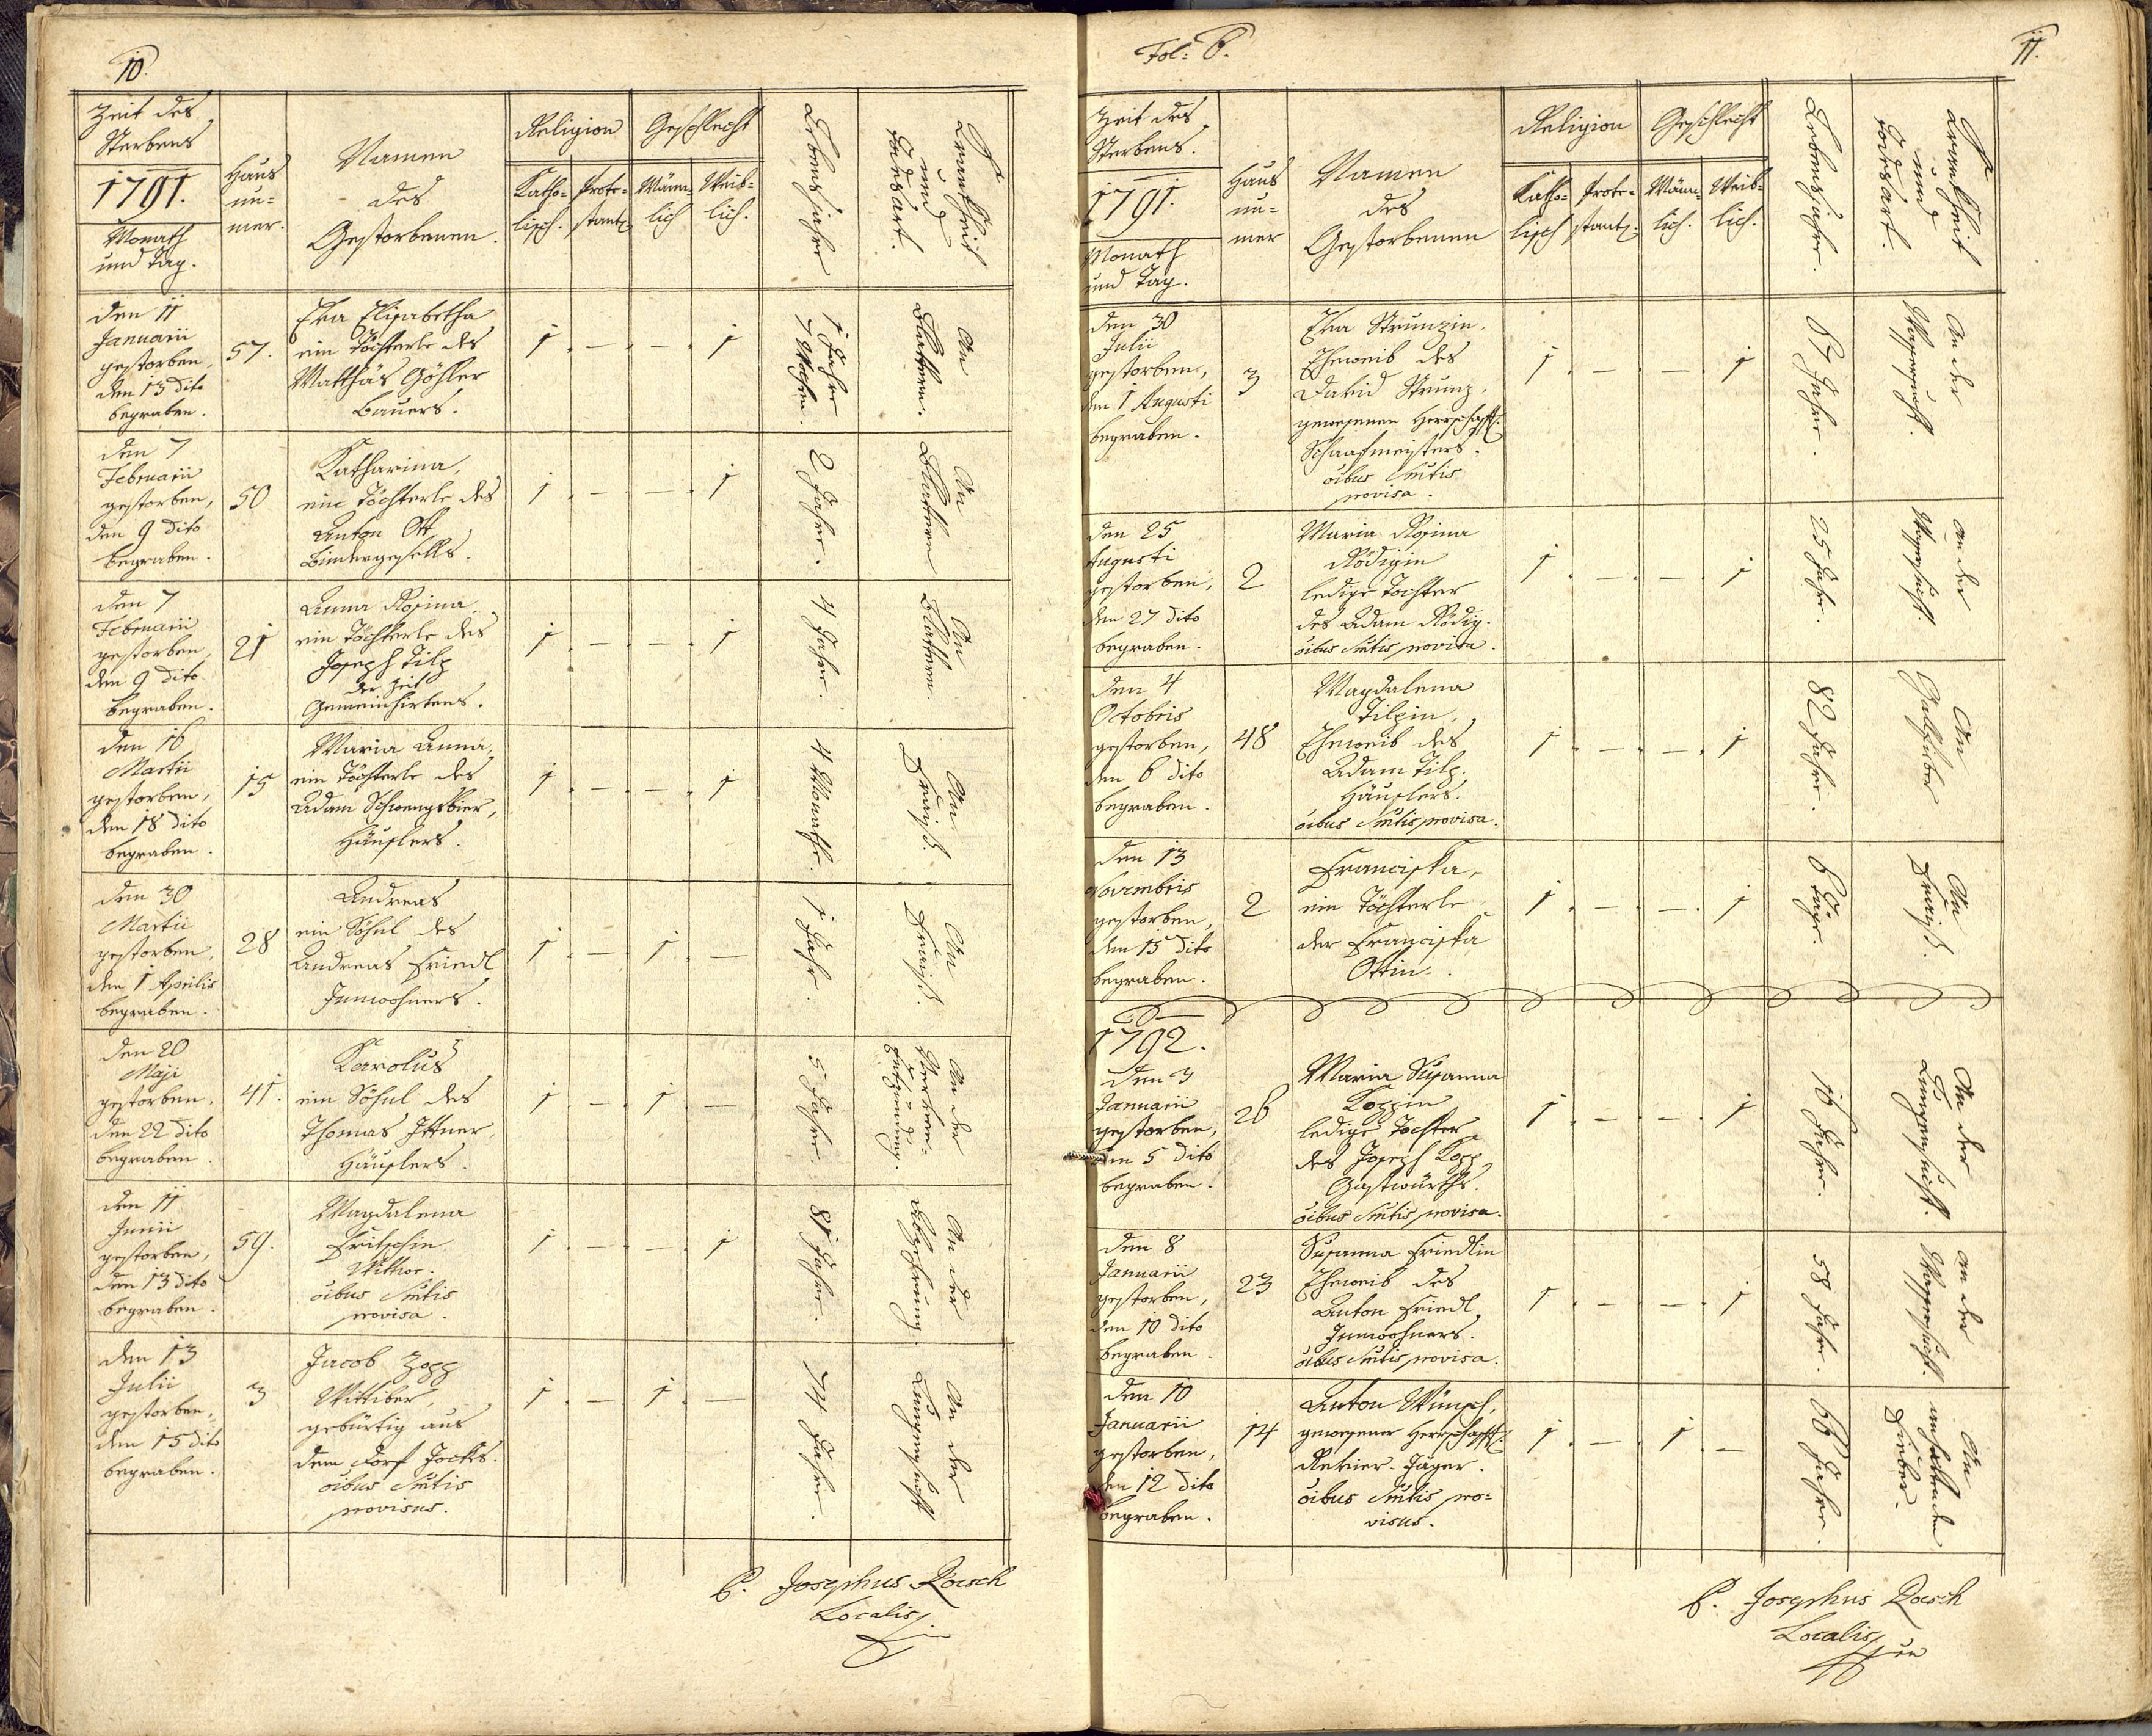 10.
Zeit des
Sterbens
1791.
Monath
und Tag.
Haus
nu=
mer.
Namen
des
Gestorbenen.
Religion
Katho=
lisch.
Prote=
stant.
Geschlecht
Männ=
lich
Weib=
lich.
Lebensjahre
Krankheit
und
Todesart.
den 11
Januarii
gestorben,
den 13 dito
begraben.
57.
Eva Elisabetha
ein Töchterle des
Matthäs Göhler
Bauers.
1. — . — . 1
1 Jahr
7 Wochen.
An
Blattern.
den 7
Februarii
gestorben,
den 9 dito
begraben.
50
Katharina,
ein Töchterle des
Anton Ott,
Bindergesells.
1. — . — . 1
2 Jahre.
An
Blattern
den 7
Februarii
gestorben,
den 9 dito
begraben.
21
Anna Rosina
ein Töchterle des
Joseph Tilp
der Zeit
Gemeinhirtens.
1. — . — . 1
4 Jahre.
An
Blattern.
den 16
Martii
gestorben,
den 18 dito
begraben.
15
Maria Anna,
ein Töchterle des
Adam Schwengsbier,
Häuslers.
1. — . — . 1
4 Monathe.
An
Fraiß.
den 30
Martii
gestorben,
den 1 Aprilis
begraben.
28
Andreas
ein Söhnl des
Andreas Friedl
Innwohners.
1. — . 1. —
1 Jahr.
An
Fraiß.
den 20
Maji
gestorben,
den 22 dito
begraben.
41.
Karolus
ein Söhnl des
Thomas Ittner,
Häuslers.
1. — . 1. —
5 Jahre.
An der
den 11
Junii
gestorben,
den 13 dito
begraben.
59.
Magdalena
Fritschin
Wittwe.
oibus Smtis
provisa.
1. — . — . 1
81 Jahre.
An der
Abzehrung.
den 13
Julii
gestorben,
den 15 dito
begraben.
3
Jacob Zopp
Wittiber,
gebürtig aus
dem Dorf Jockes.
oibus Smtis
provisus.
1. — . 1. —
74 Jahre.
An der
Lungensucht
P. Josephus Roesch
Localis
Fol: 6.
11.
Zeit des
Sterbens.
1791.
Monath
und Tag.
Haus
nu=
mer
Namen
des
Gestorbenen
Religion
Katho=
lisch
Prote=
stant.
Geschlecht
Männ=
lich.
Weib=
lich.
Lebensjahre.
Krankheit
und
Todesart.
den 30
Julii
gestorben,
den 1 Augusti
begraben.
3
Eva Strunzin,
Eheweib des
David Strunz,
gewesenen Herrschaftl.
Schaafmeisters.
oibus Smtis
provisa.
1. — . — . 1
67 Jahre.
An der
Wassersucht.
den 25
Augusti
gestorben,
den 27 dito
begraben.
2
Maria Rosina
Rödigin
ledige Tochter
des Adam Rödig.
oibus Smtis provisa.
1. — . — . 1
25 Jahr.
an der
Wassersucht.
den 4
Octobris
gestorben,
den 6 dito
begraben.
48
Magdalena
Tilpin,
Eheweib des
Adam Tilp.
Häuslers.
oibus Smtis provisa.
1. — . — . 1
82 Jahre.
An
Gallfieber
den 13
Novembris
gestorben,
den 15 dito
begraben.
2
Franciska,
ein Töchterle
der Franciska
Ottin.
1. — . — . 1
6 Tage.
An
Fraiß.
1792.
den 3
Januarii
gestorben,
den 5 dito
begraben.
26
Maria Susanna
Kozzin
ledige Tochter
des Joseph Kopp
Gastwürths.
oibus Smtis provisa.
1. — . — . 1
16 Jahre.
An der
Lungensucht.
den 8
Januarii
gestorben,
den 10 dito
begraben.
23
Susanna Friedlin
Eheweib des
Anton Friedl
Innwohners.
oibus Smtis provisa.
1. — . — . 1
58 Jahre.
an der
Wassersucht.
den 10
Januarii
gestorben,
den 12 dito
begraben.
14
Anton Wünsch,
gewesener Herrschaftl.
Revier-Jäger.
oibus Smtis pro=
visus.
1. — . 1. —
66 Jahre.
An
anhaltenden
Fieber.
P. Josephus Roesch
Localis